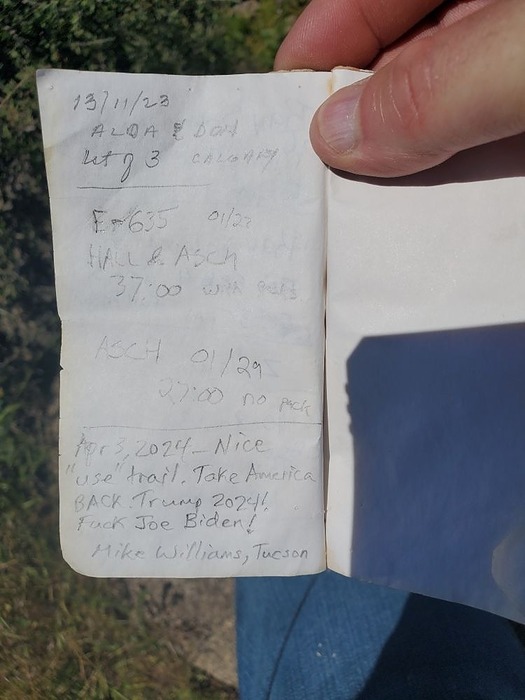 13/11/23
ALDA & DON
Wt of 3 CALGARY
E-635 01/22
HALL & ASCH
37:00 with packs
ASCH 01/29
27:00 no pack
Apr 3, 2024 - Nice
"use" trail. Take America
BACK. Trump 2024!
Fuck Joe Biden!
Mike Williams, Tucson